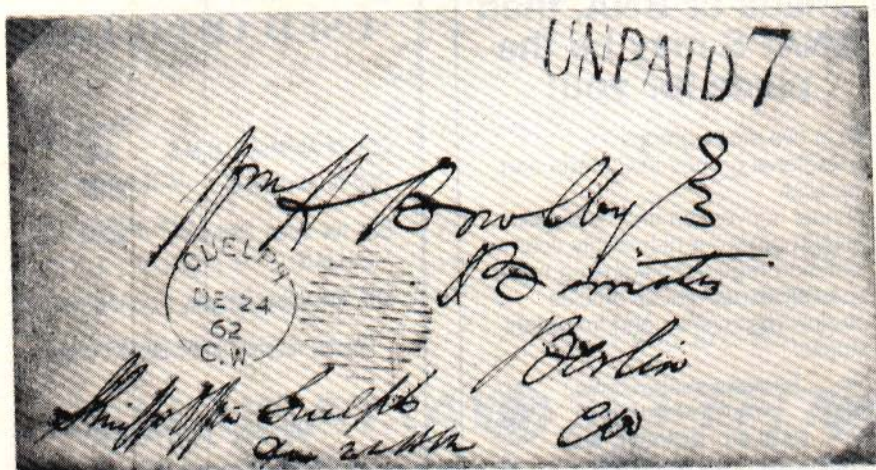 UNPAID 7
Wm H Bowlby
Berlin
CW
GUELPH
DE 24
62
C.W.
Sheriffs Office Guelph